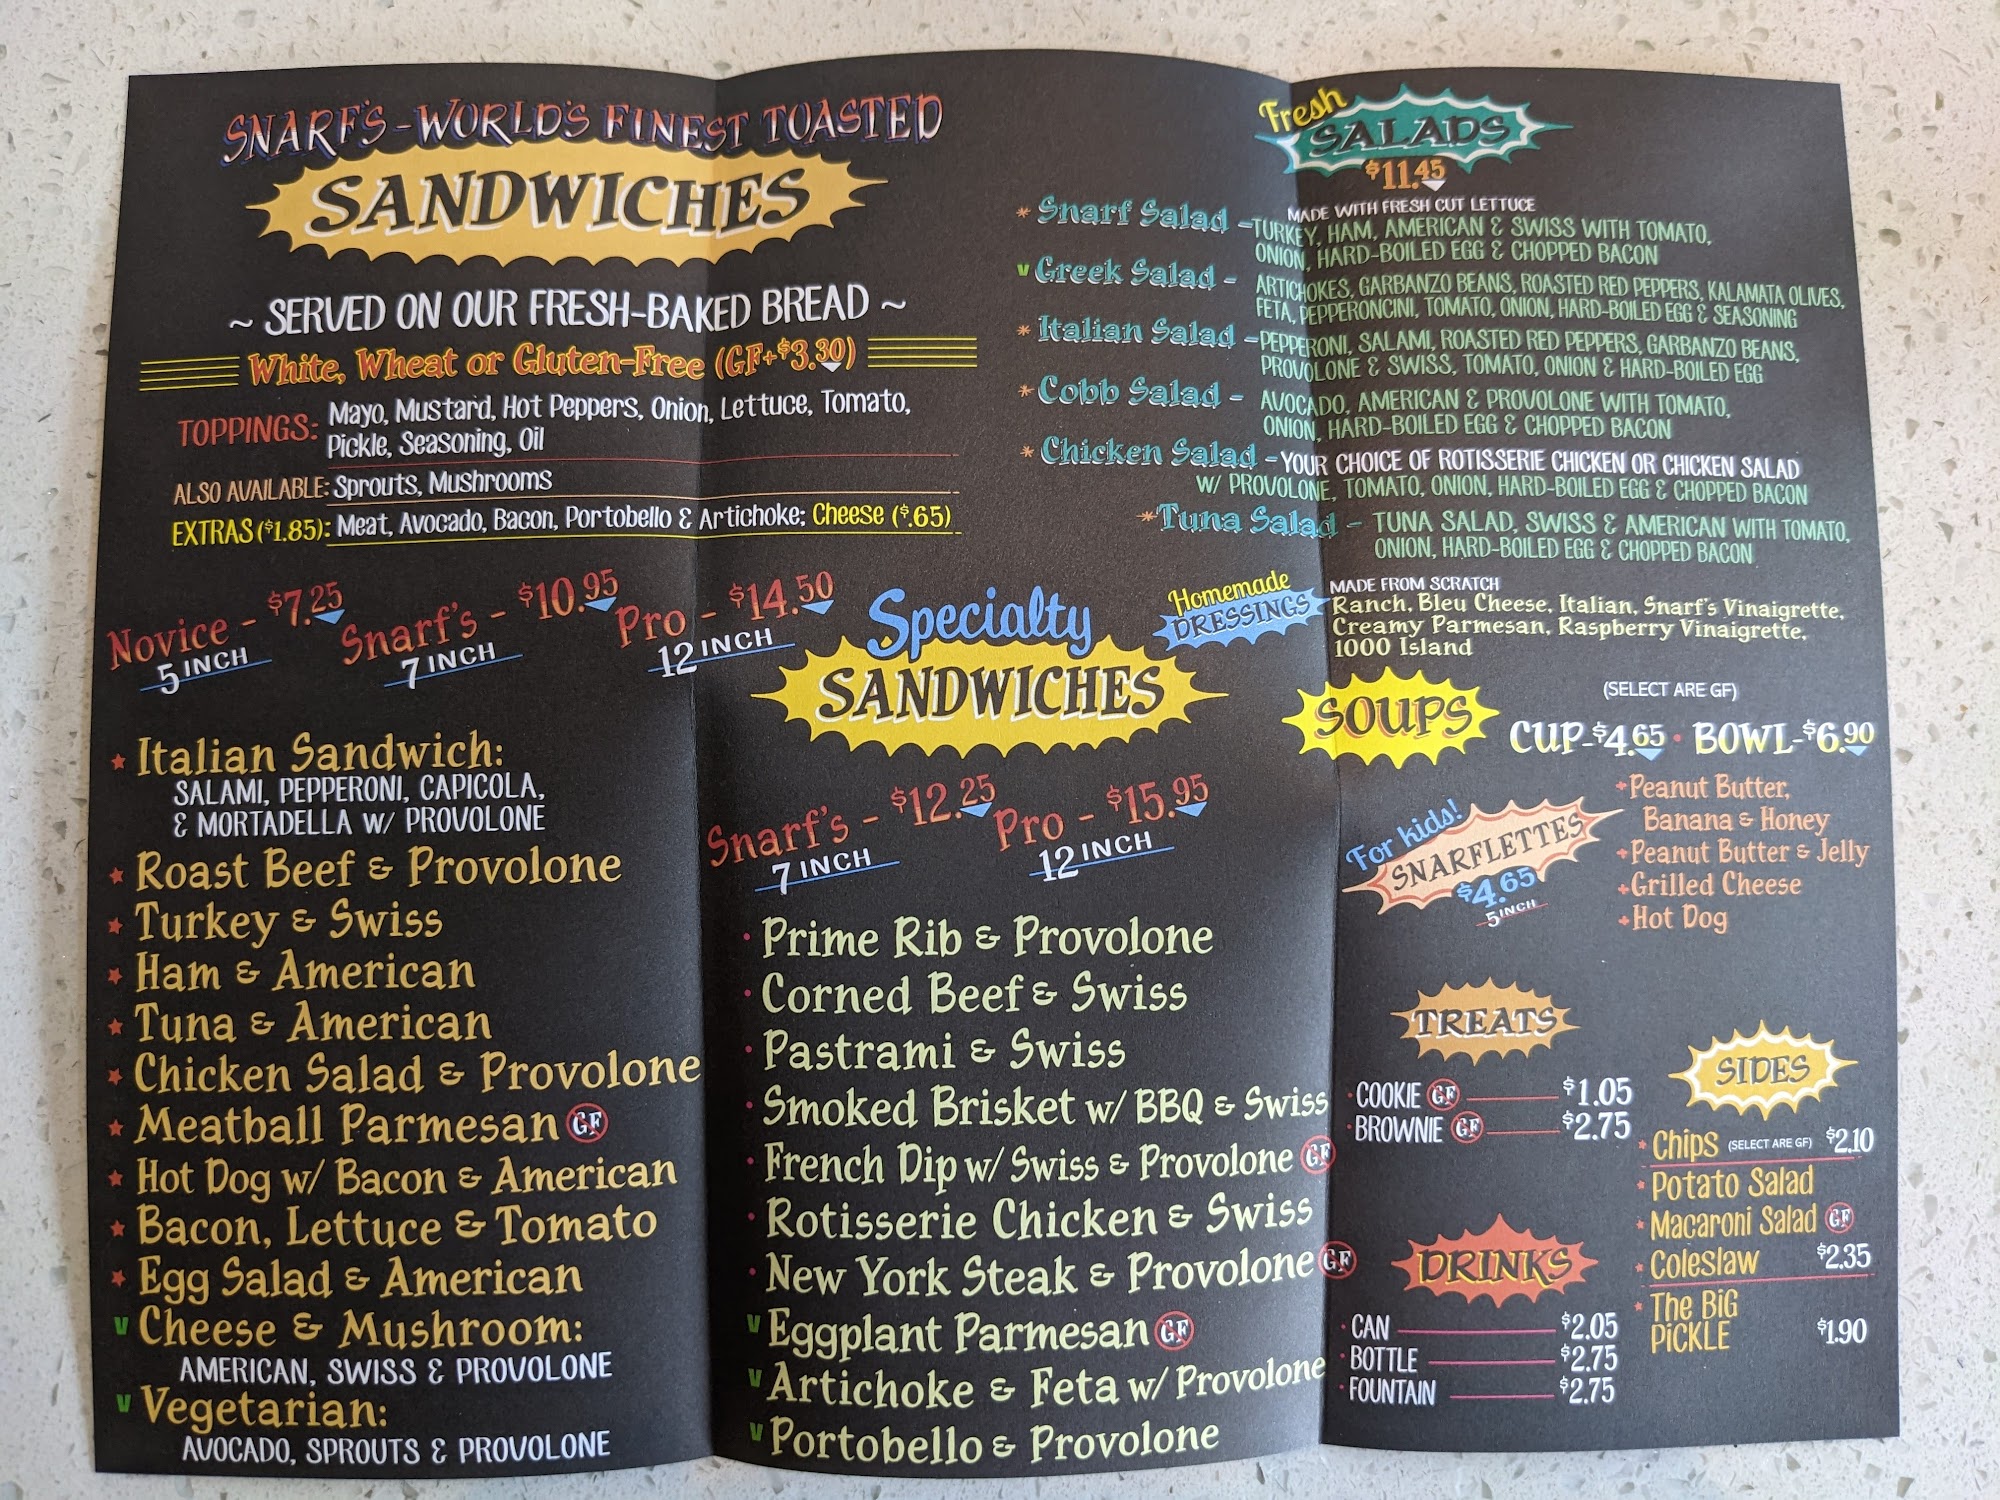 SNARF'S - WORLD'S FINEST TOASTED
SANDWICHES
~ SERVED ON OUR FRESH-BAKED BREAD ~
White, Wheat or Gluten-Free (GF+$3.30)
TOPPINGS: Mayo, Mustard, Hot Peppers, Onion, Lettuce, Tomato,
Pickle, Seasoning, Oil
ALSO AVAILABLE: Sprouts, Mushrooms
EXTRAS ($1.85): Meat, Avocado, Bacon, Portobello & Artichoke; Cheese ($.65)
Novice - $7.25
5 INCH
Snarf's - $10.95
7 INCH
Pro - $14.50
12 INCH
Italian Sandwich:
SALAMI, PEPPERONI, CAPICOLA,
& MORTADELLA W/ PROVOLONE
Roast Beef & Provolone
Turkey & Swiss
Ham & American
Tuna & American
Chicken Salad & Provolone
Meatball Parmesan GF
Hot Dog w/ Bacon & American
Bacon, Lettuce & Tomato
Egg Salad & American
V Cheese & Mushroom:
AMERICAN, SWISS & PROVOLONE
V Vegetarian:
AVOCADO, SPROUTS & PROVOLONE
Specialty
SANDWICHES
Snarf's - $12.25
7 INCH
Pro - $15.95
12 INCH
Prime Rib & Provolone
Corned Beef & Swiss
Pastrami & Swiss
Smoked Brisket w/ BBQ & Swiss
French Dip w/ Swiss & Provolone GF
Rotisserie Chicken & Swiss
New York Steak & Provolone GF
V Eggplant Parmesan GF
V Artichoke & Feta w/ Provolone
V Portobello & Provolone
Fresh
SALADS
$11.45
MADE WITH FRESH CUT LETTUCE
* Snarf Salad - TURKEY, HAM, AMERICAN & SWISS WITH TOMATO,
ONION, HARD-BOILED EGG & CHOPPED BACON
V Greek Salad - ARTICHOKES, GARBANZO BEANS, ROASTED RED PEPPERS, KALAMATA OLIVES,
FETA, PEPPERONCINI, TOMATO, ONION, HARD-BOILED EGG & SEASONING
* Italian Salad - PEPPERONI, SALAMI, ROASTED RED PEPPERS, GARBANZO BEANS,
PROVOLONE & SWISS, TOMATO, ONION & HARD-BOILED EGG
* Cobb Salad - AVOCADO, AMERICAN & PROVOLONE WITH TOMATO,
ONION, HARD-BOILED EGG & CHOPPED BACON
* Chicken Salad - YOUR CHOICE OF ROTISSERIE CHICKEN OR CHICKEN SALAD
W/ PROVOLONE, TOMATO, ONION, HARD-BOILED EGG & CHOPPED BACON
* Tuna Salad - TUNA SALAD, SWISS & AMERICAN WITH TOMATO,
ONION, HARD-BOILED EGG & CHOPPED BACON
Homemade
DRESSINGS
MADE FROM SCRATCH
Ranch, Bleu Cheese, Italian, Snarf's Vinaigrette,
Creamy Parmesan, Raspberry Vinaigrette,
1000 Island
SOUPS
(SELECT ARE GF)
CUP-$4.65 • BOWL-$6.90
For kids!
SNARFLETTES
$4.65
5 INCH
Peanut Butter,
Banana & Honey
Peanut Butter & Jelly
Grilled Cheese
Hot Dog
TREATS
COOKIE GF $1.05
BROWNIE GF $2.75
DRINKS
CAN $2.05
BOTTLE $2.75
FOUNTAIN $2.75
SIDES
Chips (SELECT ARE GF) $2.10
Potato Salad
Macaroni Salad GF
Coleslaw $2.35
The BiG
PiCKLE $1.90